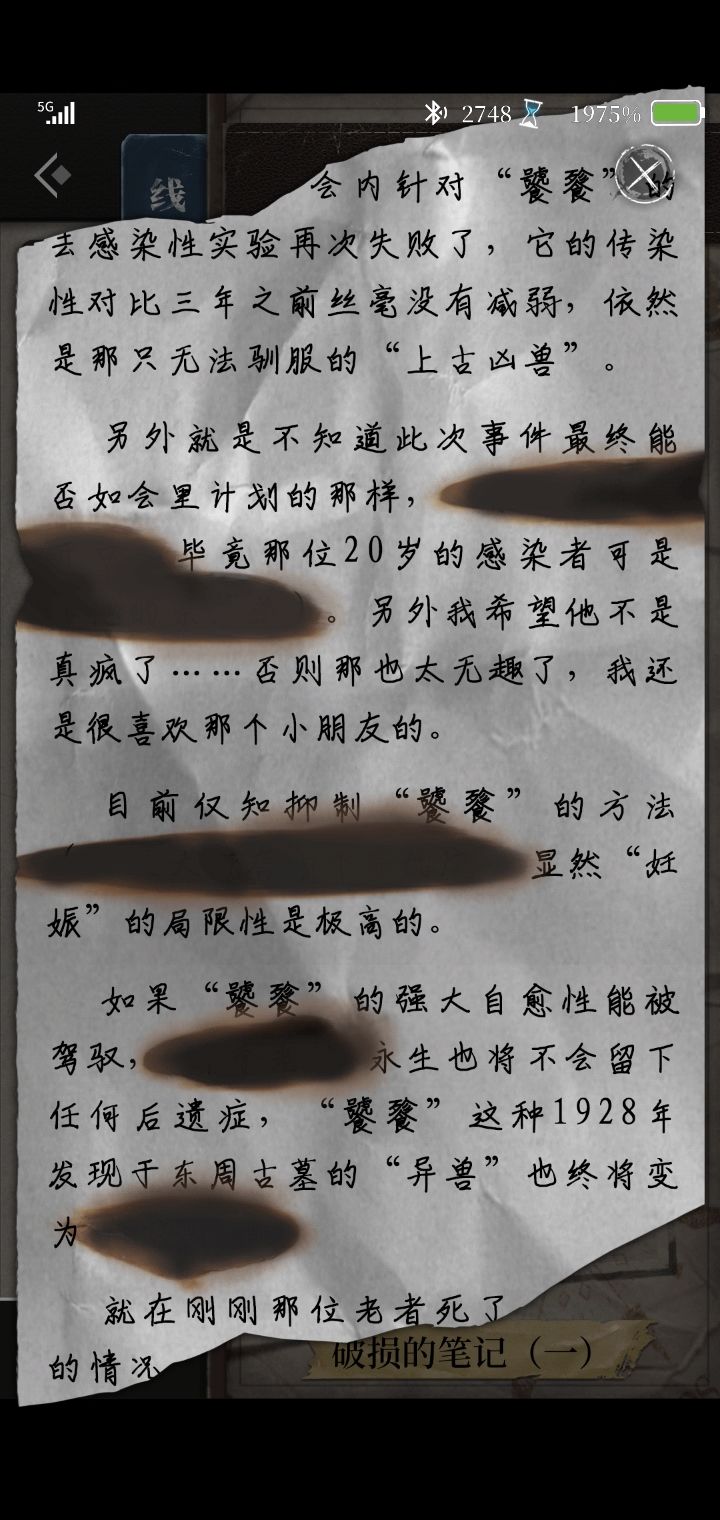 5G
2748
1975%
线
会内针对“饕餮”的
去感染性实验再次失败了，它的传染
性对比三年之前丝毫没有减弱，依然
是那只无法驯服的“上古凶兽”。
另外就是不知道此次事件最终能
否如会里计划的那样，
毕竟那位20岁的感染者可是
。另外我希望他不是
真疯了……否则那也太无趣了，我还
是很喜欢那个小朋友的。
目前仅知抑制“饕餮”的方法
显然“妊
娠”的局限性是极高的。
如果“饕餮”的强大自愈性能被
驾驭，
永生也将不会留下
任何后遗症，“饕餮”这种1928年
发现于东周古墓的“异兽”也终将变
为
就在刚刚那位老者死了
的情况
破损的笔记（一）